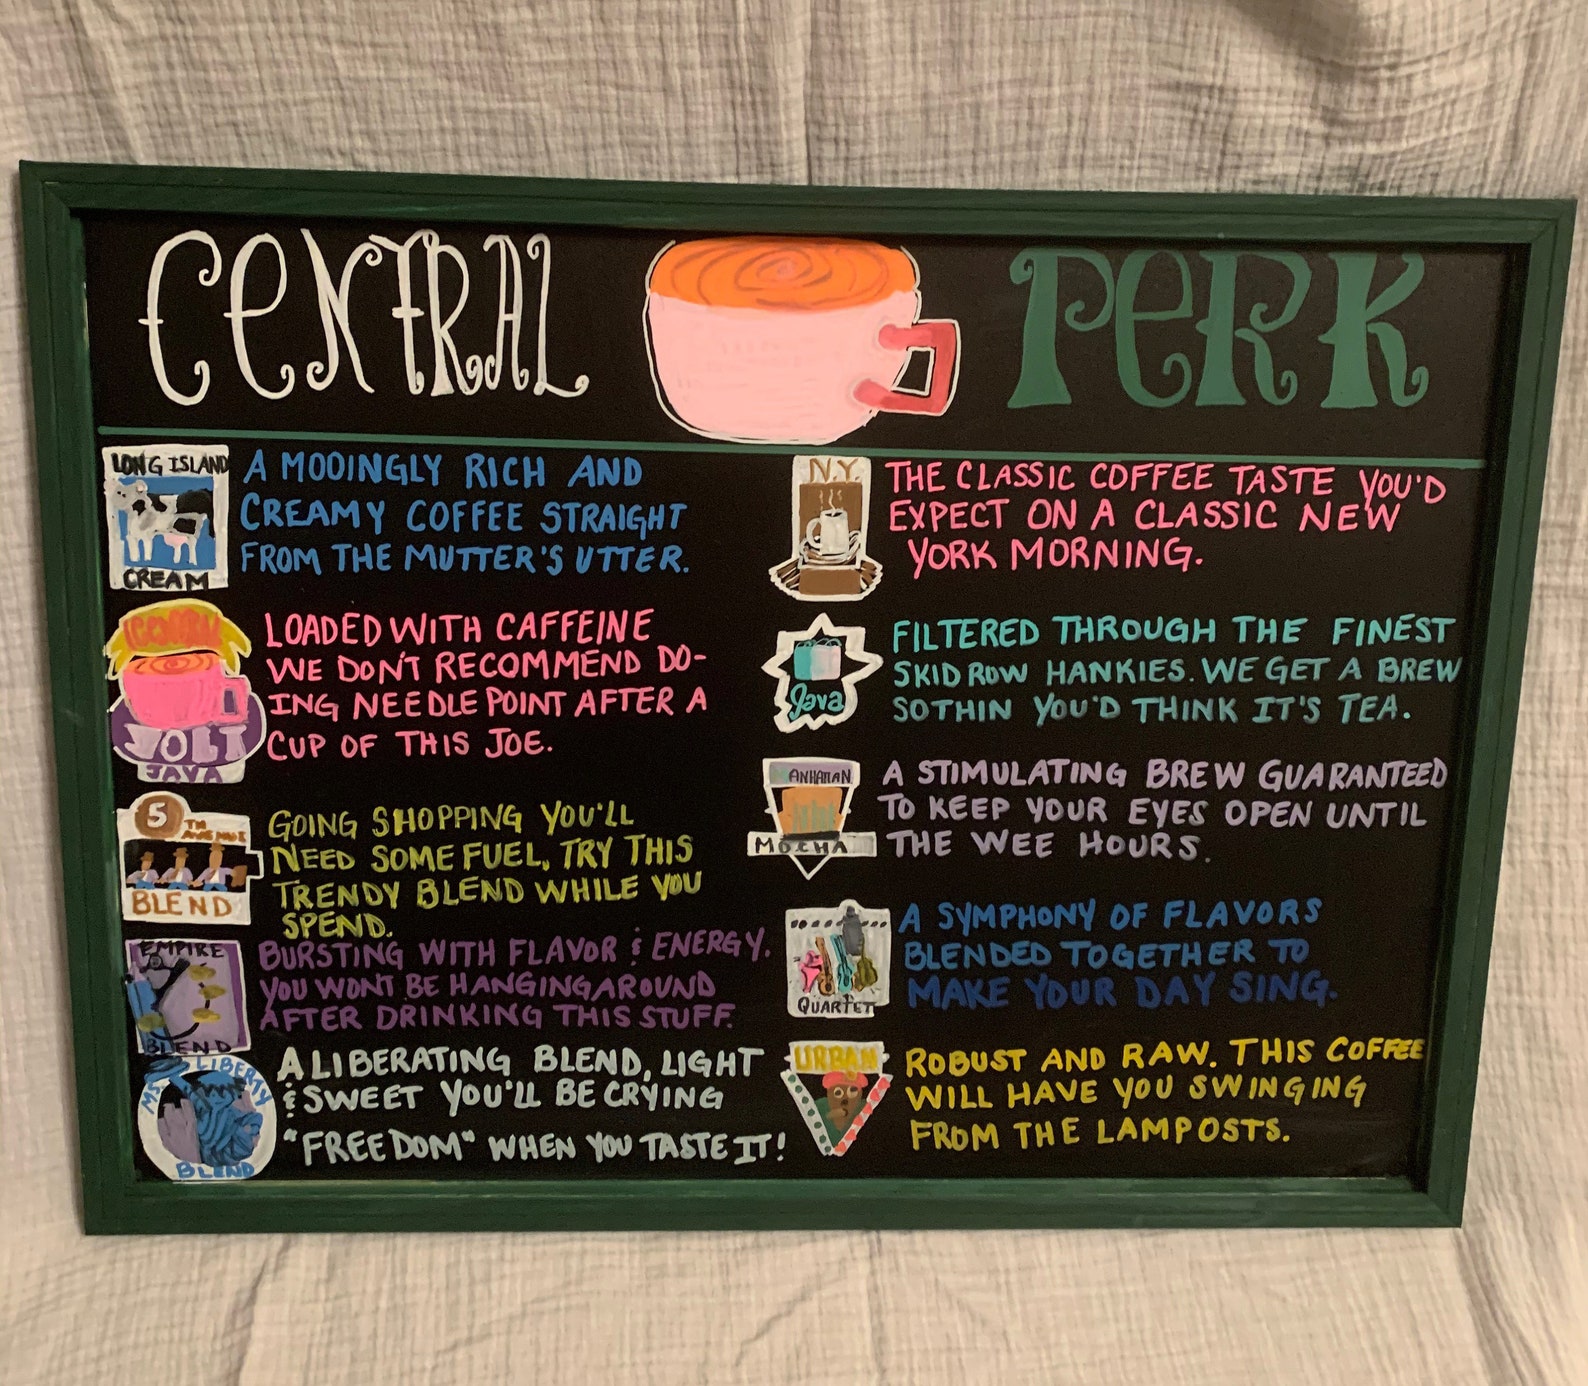 CENTRAL PERK
LONG ISLAND
CREAM
A MOOINGLY RICH AND
CREAMY COFFEE STRAIGHT
FROM THE MUTTER'S UTTER.
CENTRAL
JOLT
JAVA
LOADED WITH CAFFEINE
WE DON'T RECOMMEND DO-
ING NEEDLE POINT AFTER A
CUP OF THIS JOE.
5
TH
AVENUE
BLEND
GOING SHOPPING YOU'LL
NEED SOME FUEL, TRY THIS
TRENDY BLEND WHILE YOU
SPEND.
EMPIRE
BLEND
BURSTING WITH FLAVOR & ENERGY.
YOU WONT BE HANGING AROUND
AFTER DRINKING THIS STUFF.
MS LIBERTY
BLEND
A LIBERATING BLEND, LIGHT
& SWEET YOU'LL BE CRYING
"FREEDOM" WHEN YOU TASTE IT!
N.Y.
THE CLASSIC COFFEE TASTE YOU'D
EXPECT ON A CLASSIC NEW
YORK MORNING.
Java
FILTERED THROUGH THE FINEST
SKID ROW HANKIES. WE GET A BREW
SOTHIN YOU'D THINK IT'S TEA.
MANHATTAN
MOCHA
A STIMULATING BREW GUARANTEED
TO KEEP YOUR EYES OPEN UNTIL
THE WEE HOURS.
QUARTET
A SYMPHONY OF FLAVORS
BLENDED TOGETHER TO
MAKE YOUR DAY SING.
URBAN
ROBUST AND RAW. THIS COFFEE
WILL HAVE YOU SWINGING
FROM THE LAMPOSTS.